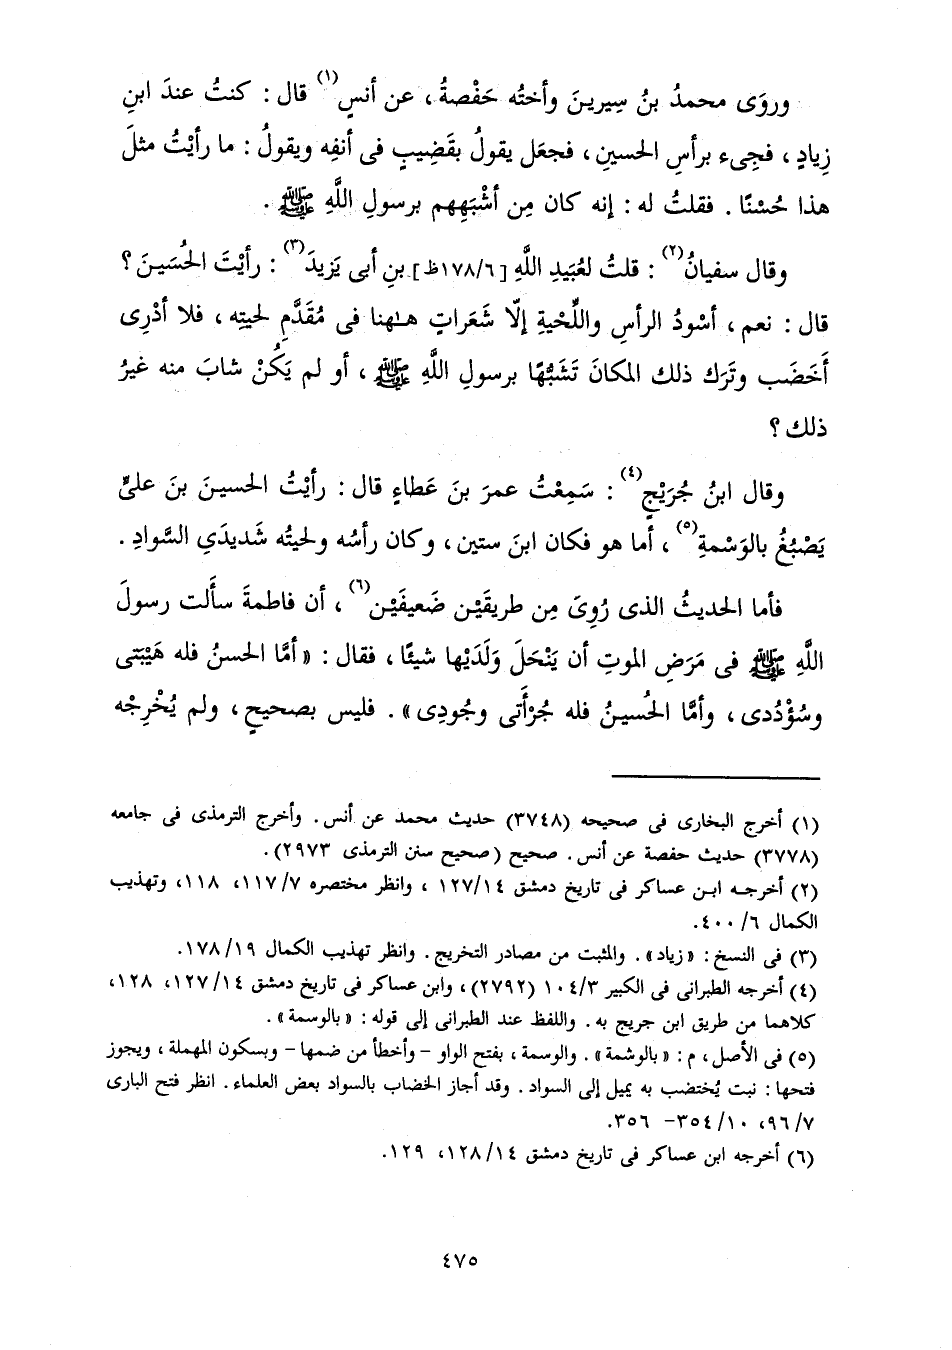 وروَى محمدُ بنُ سِيرينَ وأختُه حَفْصةُ ، عن أنسٍ(١) قال : كنتُ عندَ ابنِ
زِيادٍ ، فجِىء برأسِ الحسينِ ، فجعَل يقولُ بقَضِيبٍ فى أنفِه ويقولُ : ما رأيْتُ مثلَ
هذا حُسْنًا . فقلتُ له : إنه كان مِن أشْبَهِهم برسولِ اللَّهِ ﷺ .
وقال سفيانُ(٢) : قلتُ لعُبَيدِ اللَّهِ [١٧٨/٦ظ] بنِ أبى يَزيدَ(٣) : رأيْتَ الحُسَينَ ؟
قال : نعم ، أسْودُ الرأسِ واللِّحْيةِ إلّا شَعَراتٍ هٰهنا فى مُقَدَّمِ لحيتِه ، فلا أدْرِى
أَخَضَب وتَرَك ذلك المكانَ تَشَبُّهًا برسولِ اللَّهِ ﷺ ، أو لم يَكُنْ شابَ منه غيرُ
ذلك ؟
وقال ابنُ جُرَيْجٍ(٤) : سَمِعْتُ عمرَ بنَ عَطاءٍ قال : رأيْتُ الحسينَ بنَ علىٍّ
يَصْبُغُ بالوَسْمةِ(٥) ، أما هو فكان ابنَ ستين ، وكان رأسُه ولحيتُه شَديدَىِ السَّوادِ .
فأما الحديثُ الذى رُوِىَ مِن طريقَيْن ضَعيفَيْن(٦) ، أن فاطمةَ سأَلت رسولَ
اللَّهِ ﷺ فى مَرَضِ الموتِ أن يَنْحَلَ وَلَدَيْها شيئًا ، فقال : « أمَّا الحسنُ فله هَيْبَتى
وسُؤْدُدى ، وأمَّا الحُسينُ فله جُرْأَتى وجُودِى » . فليس بصحيحٍ ، ولم يُخْرِجْه
(١) أخرج البخارى فى صحيحه (٣٧٤٨) حديث محمد عن أنس . وأخرج الترمذى فى جامعه
(٣٧٧٨) حديث حفصة عن أنس . صحيح (صحيح سنن الترمذى ٢٩٧٣).
(٢) أخرجه ابن عساكر فى تاريخ دمشق ١٢٧/١٤ ، وانظر مختصره ١١٧/٧، ١١٨، وتهذيب
الكمال ٤٠٠/٦.
(٣) فى النسخ : « زياد » . والمثبت من مصادر التخريج . وانظر تهذيب الكمال ١٧٨/١٩.
(٤) أخرجه الطبرانى فى الكبير ١٠٤/٣ (٢٧٩٢)، وابن عساكر فى تاريخ دمشق ١٢٧/١٤، ١٢٨،
كلاهما من طريق ابن جريج به . واللفظ عند الطبرانى إلى قوله : « بالوسمة » .
(٥) فى الأصل ، م : « بالوشمة » . والوسمة ، بفتح الواو - وأخطأ من ضمها - وبسكون المهملة ، ويجوز
فتحها : نبت يُختضب به يميل إلى السواد . وقد أجاز الخضاب بالسواد بعض العلماء . انظر فتح البارى
٩٦/٧، ٣٥٤/١٠ - ٣٥٦.
(٦) أخرجه ابن عساكر فى تاريخ دمشق ١٢٨/١٤، ١٢٩.
٤٧٥